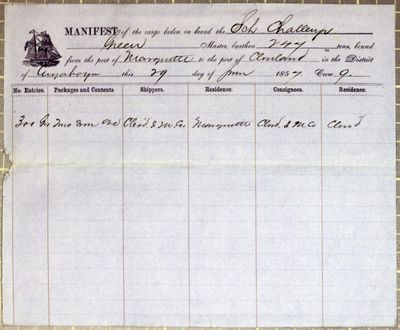 MANIFEST of the cargo laden on board the Sch Challenge
Green Master, burthen 247 tons, bound
from the port of Marquette to the port of Cleveland in the District
of Cuyahoga this 29 day of June 1857 Crew 9.
No. Entries. Packages and Contents. Shippers. Residence. Consignees. Residence.
300 Iron Ore Clevd. I. M Co. Marquette Clevd. I. M Co Clevd